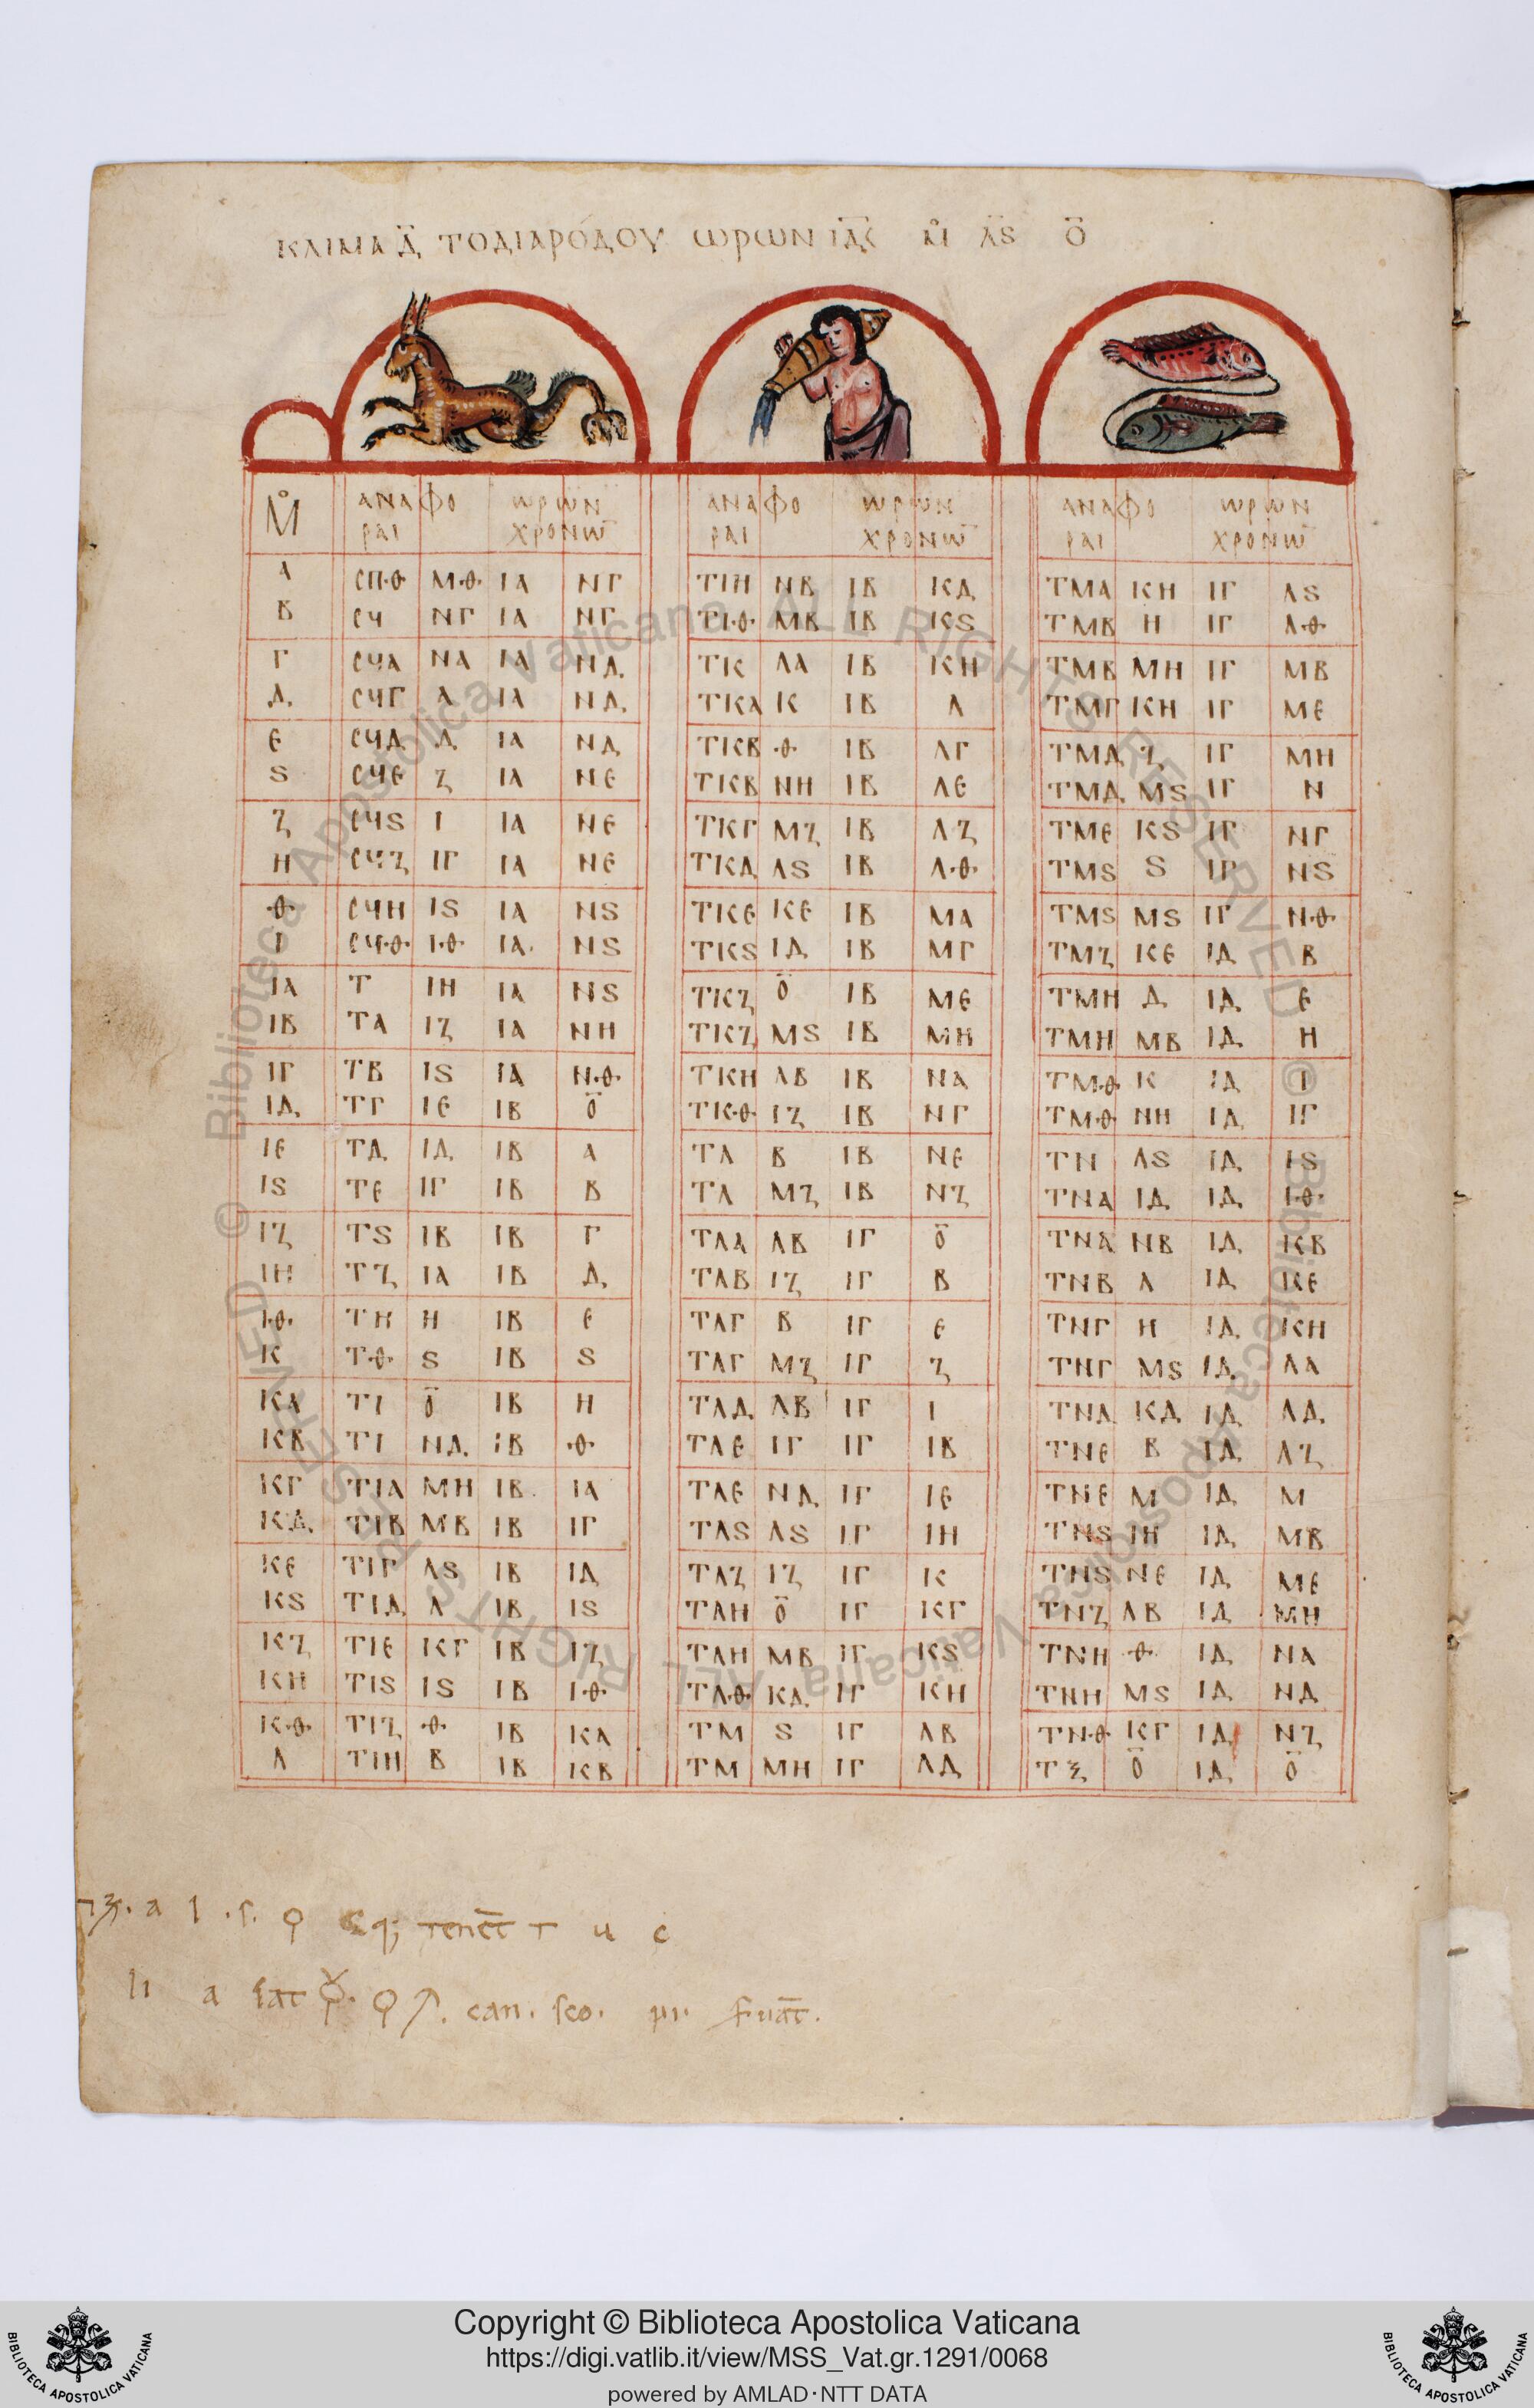 ΚΛΙΜΑ Δ̅ ΤΟ ΔΙΑ ΡΌΔΟΥ ΩΡΩΝ ΙΔ̅ϛ Μ̊ Λ̅Ϛ Ο̅
Μ̊ ΑΝΑΦΟ ΩΡΩΝ ΑΝΑΦΟ ΩΡΩΝ ΑΝΑΦΟ ΩΡΩΝ
ΡΑΙ ΧΡΟΝΩ̅ ΡΑΙ ΧΡΟΝΩ̅ ΡΑΙ ΧΡΟΝΩ̅
Α ϹΠΘ ΜΘ ΙΑ ΝΓ ΤΙΗ ΝΒ ΙΒ ΚΔ ΤΜΑ ΚΗ ΙΓ ΛϚ
Β ϹϞ ΝΓ ΙΑ ΝΓ ΤΙΘ ΜΒ ΙΒ ΚϚ ΤΜΒ Η ΙΓ ΛΘ
Γ ϹϞΑ ΝΑ ΙΑ ΝΔ ΤΚ ΛΑ ΙΒ ΚΗ ΤΜΒ ΜΗ ΙΓ ΜΒ
Δ ϹϞΓ Α ΙΑ ΝΔ ΤΚΑ Κ ΙΒ Λ ΤΜΓ ΚΗ ΙΓ ΜΕ
Ε ϹϞΔ Δ ΙΑ ΝΔ ΤΚΒ Θ ΙΒ ΛΓ ΤΜΔ Ζ ΙΓ ΜΗ
Ϛ ϹϞΕ Ζ ΙΑ ΝΕ ΤΚΒ ΝΗ ΙΒ ΛΕ ΤΜΔ ΜϚ ΙΓ Ν
Ζ ϹϞϚ Ι ΙΑ ΝΕ ΤΚΓ ΜΖ ΙΒ ΛΖ ΤΜΕ ΚϚ ΙΓ ΝΓ
Η ϹϞΖ ΙΓ ΙΑ ΝΕ ΤΚΔ ΛϚ ΙΒ ΛΘ ΤΜϚ Ϛ ΙΓ ΝϚ
Θ ϹϞΗ ΙϚ ΙΑ ΝϚ ΤΚΕ ΚΕ ΙΒ ΜΑ ΤΜϚ ΜϚ ΙΓ ΝΘ
Ι ϹϞΘ ΙΘ ΙΑ ΝϚ ΤΚϚ ΙΔ ΙΒ ΜΓ ΤΜΖ ΚΕ ΙΔ Β
ΙΑ Τ ΙΗ ΙΑ ΝϚ ΤΚΖ Ο̅ ΙΒ ΜΕ ΤΜΗ Δ ΙΔ Ε
ΙΒ ΤΑ ΙΖ ΙΑ ΝΗ ΤΚΖ ΜϚ ΙΒ ΜΗ ΤΜΗ ΜΒ ΙΔ Η
ΙΓ ΤΒ ΙϚ ΙΑ ΝΘ ΤΚΗ ΛΒ ΙΒ ΝΑ ΤΜΘ Κ ΙΔ Ι
ΙΔ ΤΓ ΙΕ ΙΒ Ο̅ ΤΚΘ ΙΖ ΙΒ ΝΓ ΤΜΘ ΝΗ ΙΔ ΙΓ
ΙΕ ΤΔ ΙΔ ΙΒ Α ΤΛ Β ΙΒ ΝΕ ΤΝ ΛϚ ΙΔ ΙϚ
ΙϚ ΤΕ ΙΓ ΙΒ Β ΤΛ ΜΖ ΙΒ ΝΖ ΤΝΑ ΙΔ ΙΔ ΙΘ
ΙΖ ΤϚ ΙΒ ΙΒ Γ ΤΛΑ ΛΒ ΙΓ Ο̅ ΤΝΑ ΝΒ ΙΔ ΚΒ
ΙΗ ΤΖ ΙΑ ΙΒ Δ ΤΛΒ ΙΖ ΙΓ Β ΤΝΒ Λ ΙΔ ΚΕ
ΙΘ ΤΗ Η ΙΒ Ε ΤΛΓ Β ΙΓ Ε ΤΝΓ Η ΙΔ ΚΗ
Κ ΤΘ Ϛ ΙΒ Ϛ ΤΛΓ ΜΖ ΙΓ Ζ ΤΝΓ ΜϚ ΙΔ ΛΑ
ΚΑ ΤΙ Ο̅ ΙΒ Η ΤΛΔ ΛΒ ΙΓ Ι ΤΝΔ ΚΔ ΙΔ ΛΔ
ΚΒ ΤΙ ΝΔ ΙΒ Θ ΤΛΕ ΙΓ ΙΓ ΙΒ ΤΝΕ Β ΙΔ ΛΖ
ΚΓ ΤΙΑ ΜΗ ΙΒ ΙΑ ΤΛΕ ΝΔ ΙΓ ΙΕ ΤΝΕ Μ ΙΔ Μ
ΚΔ ΤΙΒ ΜΒ ΙΒ ΙΓ ΤΛϚ ΛϚ ΙΓ ΙΗ ΤΝϚ ΙΗ ΙΔ ΜΒ
ΚΕ ΤΙΓ ΛϚ ΙΒ ΙΔ ΤΛΖ ΙΖ ΙΓ Κ ΤΝϚ ΝΕ ΙΔ ΜΕ
ΚϚ ΤΙΔ Λ ΙΒ ΙϚ ΤΛΗ Ο̅ ΙΓ ΚΓ ΤΝΖ ΛΒ ΙΔ ΜΗ
ΚΖ ΤΙΕ ΚΓ ΙΒ ΙΖ ΤΛΗ ΜΒ ΙΓ ΚϚ ΤΝΗ Θ ΙΔ ΝΑ
ΚΗ ΤΙϚ ΙϚ ΙΒ ΙΘ ΤΛΘ ΚΔ ΙΓ ΚΗ ΤΝΗ ΜϚ ΙΔ ΝΔ
ΚΘ ΤΙΖ Θ ΙΒ ΚΑ ΤΜ Ϛ ΙΓ ΛΒ ΤΝΘ ΚΓ ΙΔ ΝΖ
Λ ΤΙΗ Β ΙΒ ΚΒ ΤΜ ΜΗ ΙΓ ΛΔ ΤΞ Ο̅ ΙΔ Ο̅
a
a can. sco.
© Biblioteca Apostolica Vaticana ALL RIGHTS RESERVED
© Biblioteca Apostolica Vaticana ALL RIGHTS RESERVED
Copyright © Biblioteca Apostolica Vaticana
https://digi.vatlib.it/view/MSS_Vat.gr.1291/0068
powered by AMLAD·NTT DATA
BIBLIOTECA APOSTOLICA VATICANA
BIBLIOTECA APOSTOLICA VATICANA